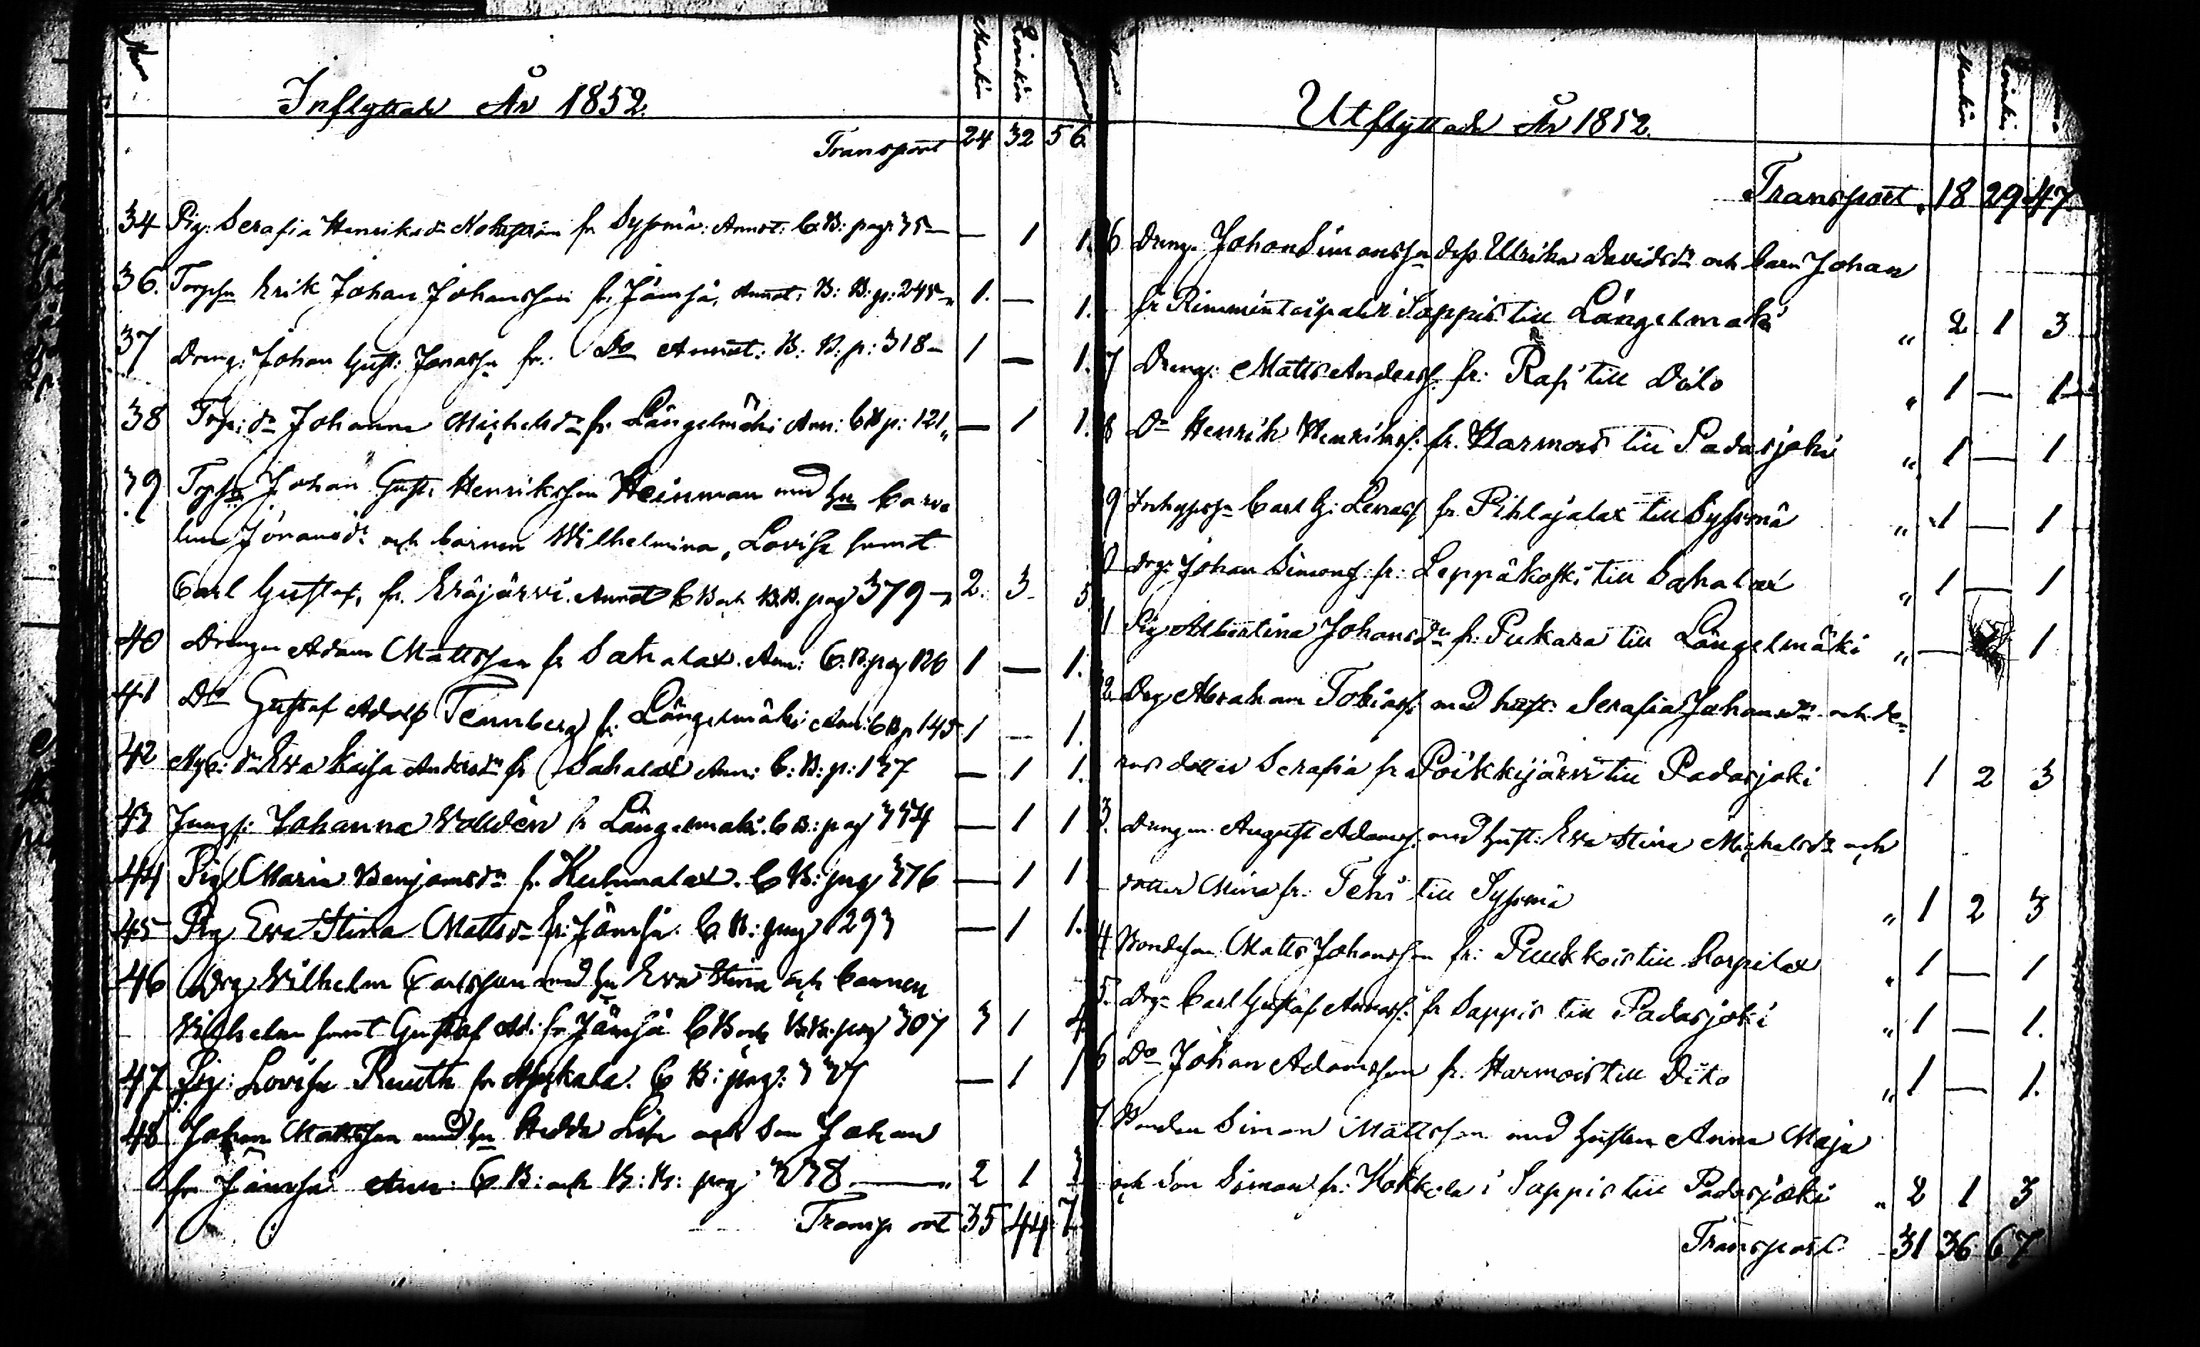 Inflyttade År 1852.
Mankön Qvinkön
Transport 24 32 56
34 Pig. Serafia Henriksdr fr Sysmä. Annot: C.B: pag: 75 — — 1 1.
36. Torpsn Erik Johan Johansson fr Jämsä, Annot: B: B: p: 245 „ 1. — 1.
37 Dreng: Johan Gust: Jonassn fr: Do Annot: B: B: p: 318 — 1 — 1.
38 Torp: dr Johanna Michelsdr fr Längelmäki Ann: C B p: 121 „ — 1 1.
39 Torpsn Johan Gust: Henriksson Heinman med hu Caro
lina och barnen Wilhelmina, Lovisa samt
Carl Gustaf, fr. Eräjärvi. Annot C B och B.B. pag 379 — 2. 3. 5
40 Drengen Adam Mattsson fr Sahalax. Ann: C. B. pag 126 1 — 1.
41 Do Gustaf Adolf Tennberg fr. Längelmäki Ann: C B p 145 1 — 1.
42 Nyb: dr Eva Kaisa Andersdr fr Sahalax Ann: C: B: p: 137 — 1 1.
43 Jungf: Johanna Wallden fr Längelmäki. C B: pag 354 — 1 1
44 Pig Maria Benjamsdr fr. Kuhmalax. C B: pag 376 — 1 1
45 Pig Eva Stina Mattsdr fr: Jämsä. C. B: pag 293 — 1 1.
46 Drg Wilhelm Carlsson med hu Eva Stina och barnen
Wilhelm samt Gustaf Ad: fr Jämsä C B och B.B: pag 307 3 1 4
47 Pig: Lovisa Ruuth fr C B: pag: — 1 1
48 Johan Mattsson med hu Hedda Lisa och Son Johan
fr Jämsä Ann: C. B: och B: B: pag 2 1 3
Transport 35 44 7
Utflyttade År 1852.
Mankön
Transport. 18 29 47
6 Dreng. Johan Simonssn dess Ulrika Davidsdr och barn Johan
fr i Sappis till Längelmäki „ 2 1 3
7 Dreng: Matts Anderss. fr: till Dito „ 1 — 1
8 Do Henrik Henrikss. fr. Harmois till Padasjoki „ 1 — 1
9 Carl G: fr Pihlajalax till Sysmä „ 1 — 1
0 Drg: Johan Simonss: fr: Leppäkoski till Sahalax „ 1 — 1
1 Pig Albertina Johansdr fr: Pukara till Längelmäki „ — 1
2. Drg Abraham Tobiass: med hust: Serafia Johansdr och de-
ras dotter Serafia fr Poikkijärvi till Padasjoki 1 2 3
3. Drengen August Adamss. med hust: Eva Stina Michelsdr och
dotter Mina fr: Tehi till Sysmä „ 1 2 3
4 Bondeson Matts Johansson fr: Puukkois till Korpilax „ 1 — 1
5. Drg Carl Gustaf fr Sappis till Padasjoki „ 1 — 1.
6 Do Johan Adamsson fr. Harmois till Dito „ 1 — 1.
7 Bonden Simon Mattsson med hustru Anna Maja
och Son Simon fr: Kokkola i Sappis till Padasjoki „ 2 1 3
Transport 31 36 67